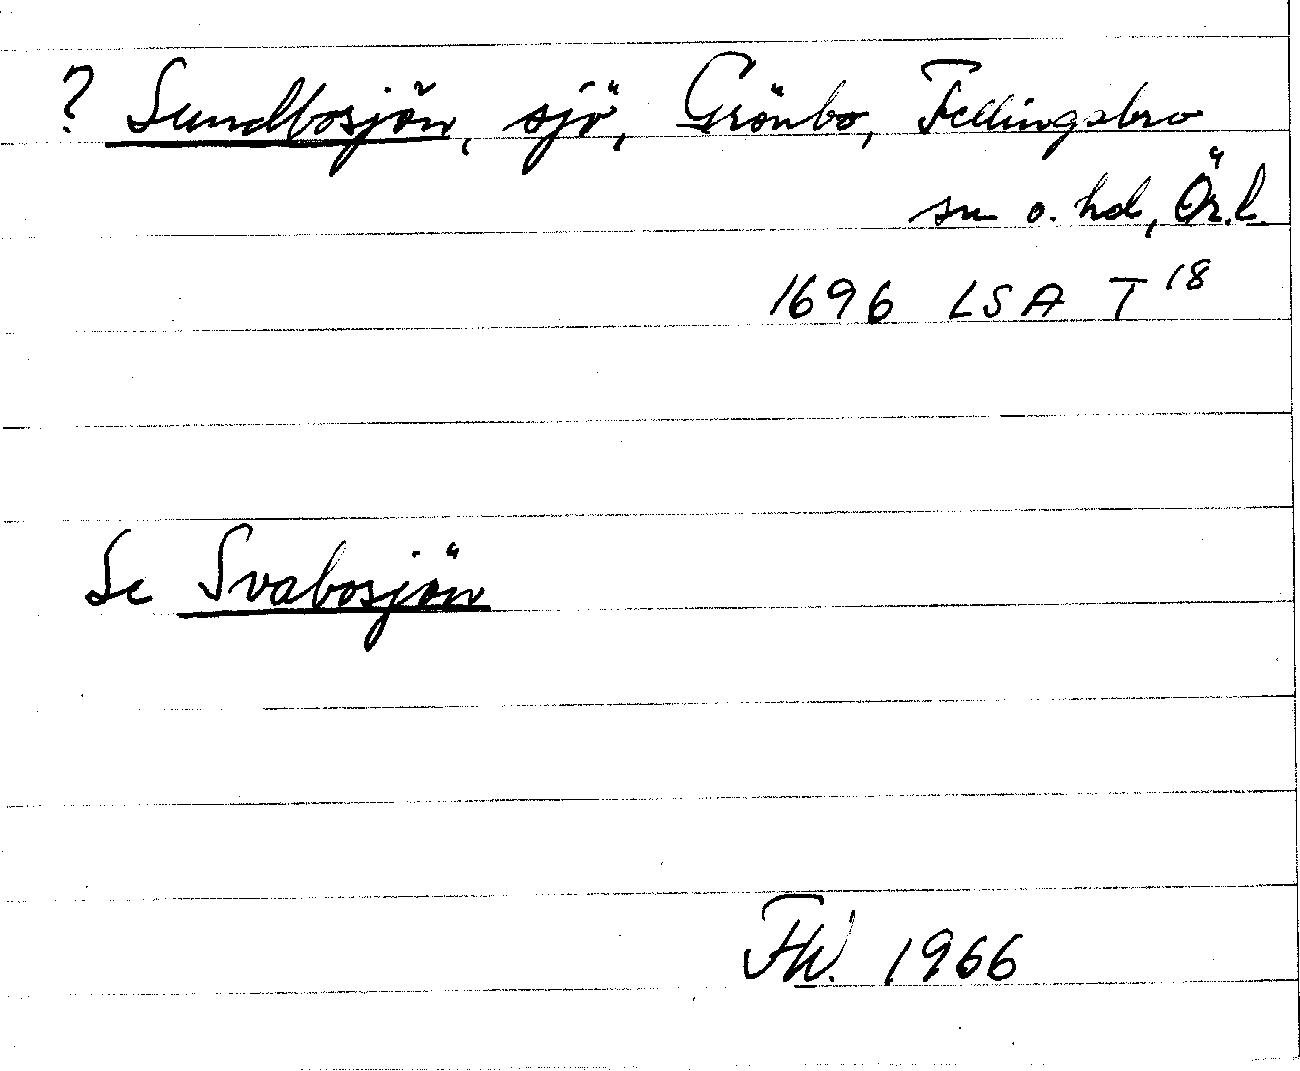 ? Sundbosjön, sjö, Grönbo, Fellingsbro
sn o. hd, Ör.l.
1696 LSA T 18
Se Svabosjön
FW. 1966